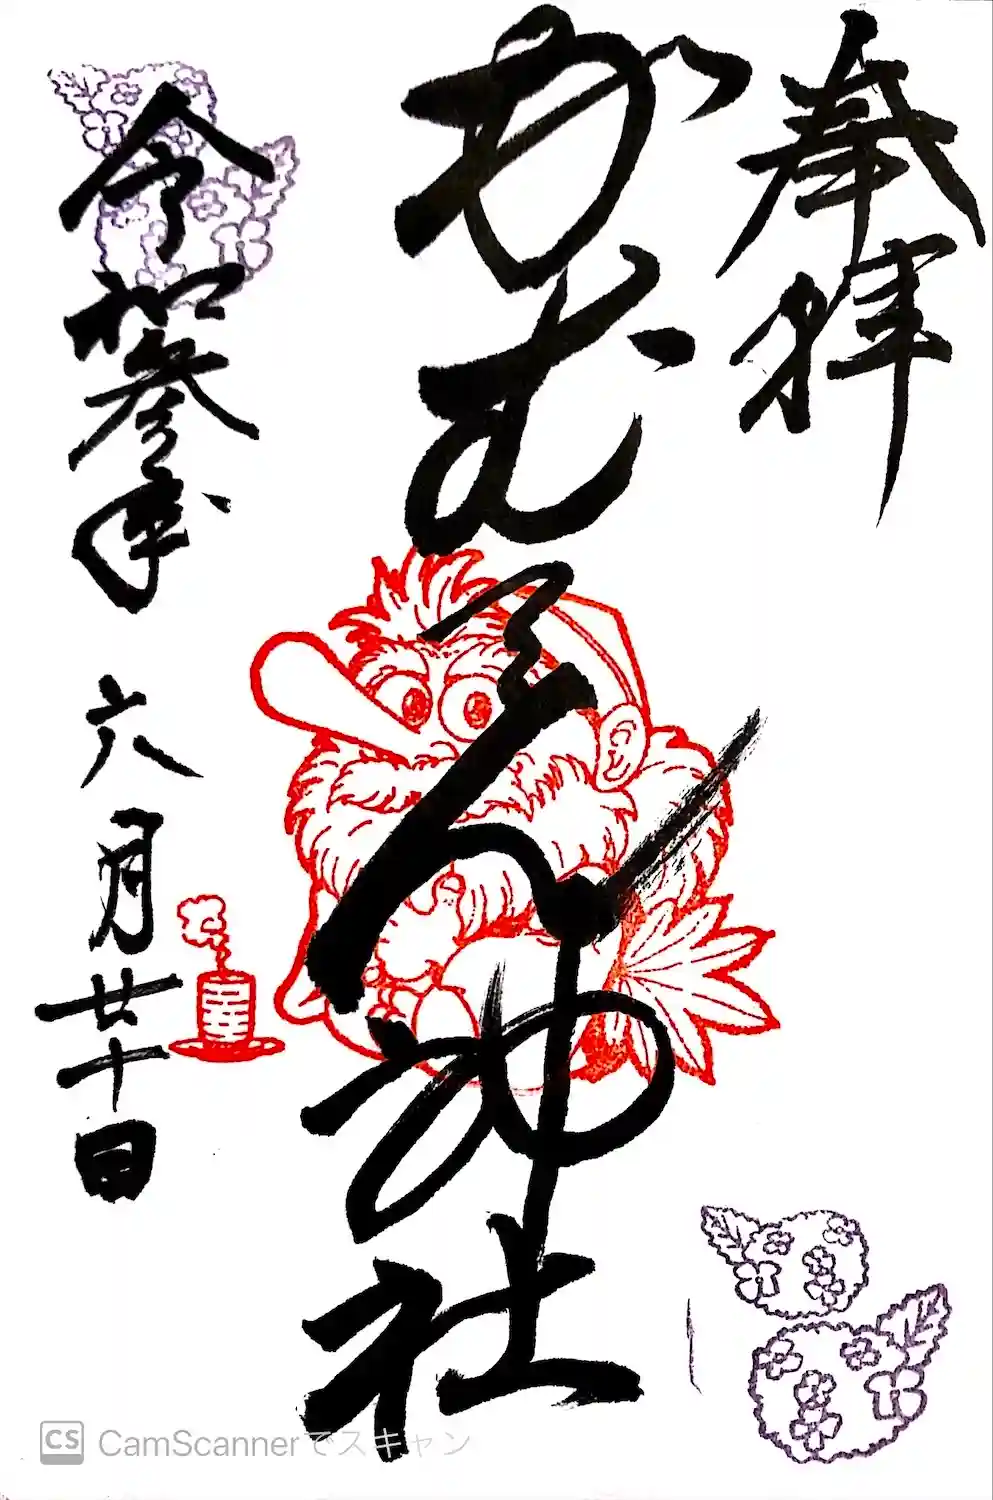 奉拝
かむ神社
令和参年 六月廿十日
CS CamScannerでスキャン